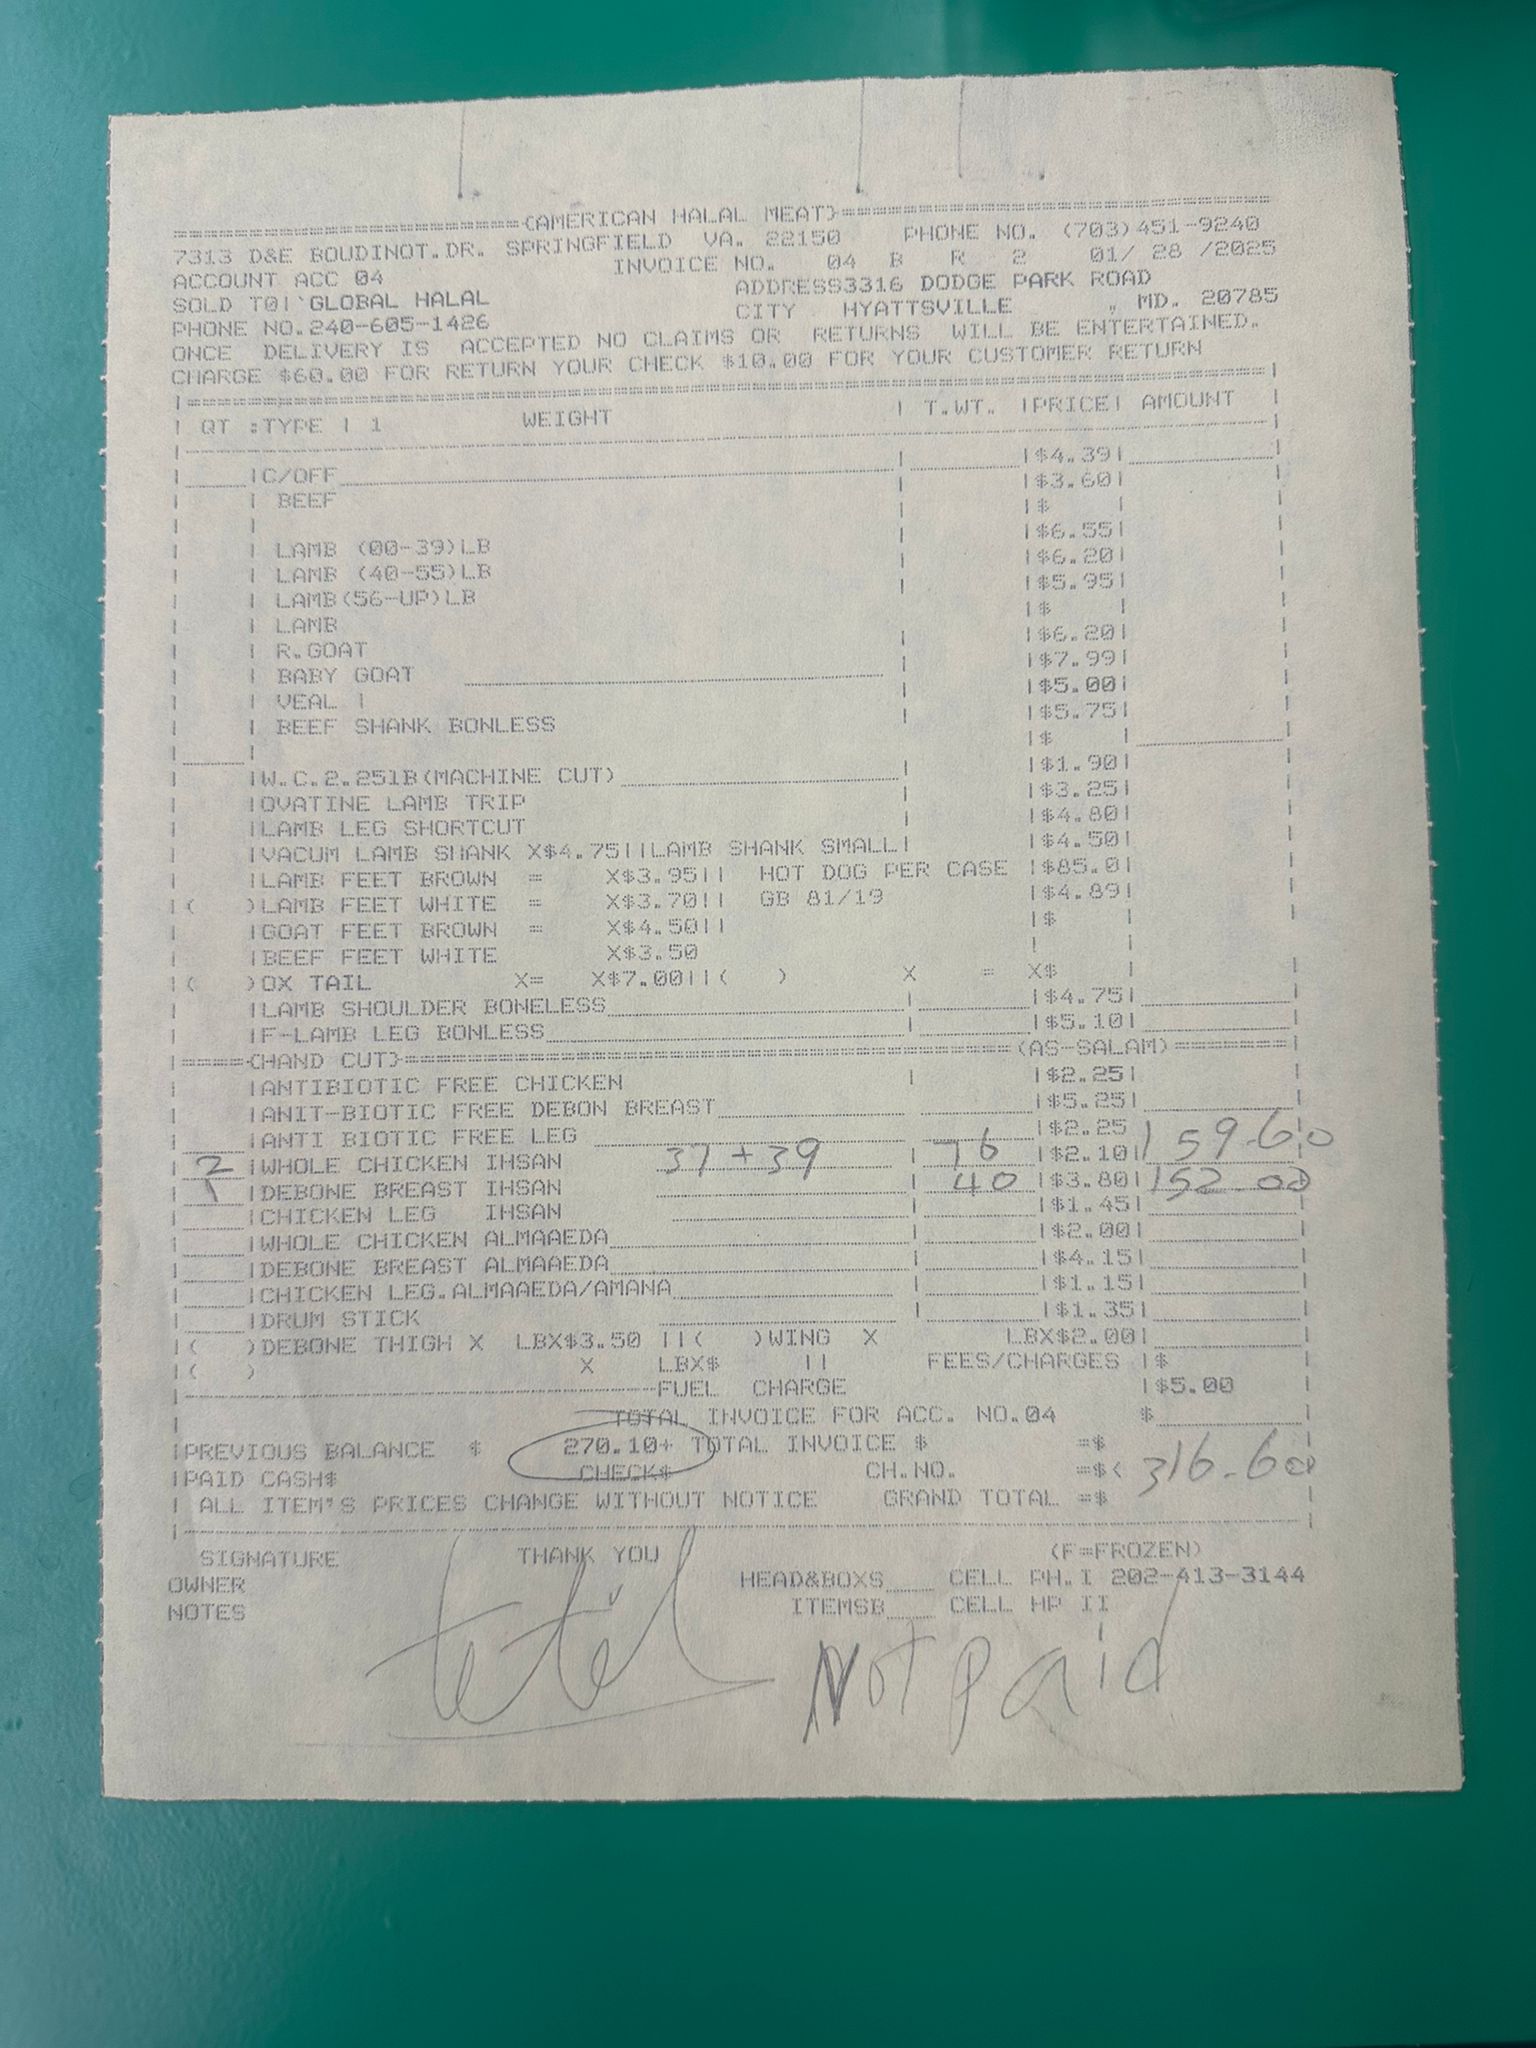 ==================={AMERICAN HALAL MEAT}===================
7313 D&E BOUDINOT.DR. SPRINGFIELD VA. 22150 PHONE NO. (703)451-9240
ACCOUNT ACC 04 INVOICE NO. 04 B R 2 01/ 28 /2025
SOLD TO|`GLOBAL HALAL ADDRESS3316 DODGE PARK ROAD
PHONE NO.240-605-1426 CITY HYATTSVILLE , MD. 20785
ONCE DELIVERY IS ACCEPTED NO CLAIMS OR RETURNS WILL BE ENTERTAINED.
CHARGE $60.00 FOR RETURN YOUR CHECK $10.00 FOR YOUR CUSTOMER RETURN
| QT :TYPE | 1 WEIGHT | T.WT. |PRICE| AMOUNT
|C/OFF |$4.39|
| BEEF |$3.60|
| |$ |
| LAMB (00-39)LB |$6.55|
| LAMB (40-55)LB |$6.20|
| LAMB(56-UP)LB |$5.95|
| LAMB |$ |
| R.GOAT |$6.20|
| BABY GOAT |$7.99|
| VEAL | |$5.00|
| BEEF SHANK BONLESS |$5.75|
| |$ |
|W.C.2.25lB(MACHINE CUT) |$1.90|
|OVATINE LAMB TRIP |$3.25|
|LAMB LEG SHORTCUT |$4.80|
|VACUM LAMB SHANK X$4.75||LAMB SHANK SMALL| |$4.50|
|LAMB FEET BROWN = X$3.95|| HOT DOG PER CASE |$85.0|
|( )LAMB FEET WHITE = X$3.70|| GB 81/19 |$4.89|
|GOAT FEET BROWN = X$4.50|| |$
|BEEF FEET WHITE X$3.50
|( )OX TAIL X= X$7.00||( ) X = X$ |
|LAMB SHOULDER BONELESS |$4.75|
|F-LAMB LEG BONLESS |$5.10|
|====={HAND CUT}==========================(AS-SALAM)=======|
|ANTIBIOTIC FREE CHICKEN |$2.25|
|ANIT-BIOTIC FREE DEBON BREAST |$5.25|
|ANTI BIOTIC FREE LEG |$2.25
2 |WHOLE CHICKEN IHSAN 37 + 39 76 |$2.10| 159.60
1 |DEBONE BREAST IHSAN 40 |$3.80| 152.00
|CHICKEN LEG IHSAN |$1.45|
|WHOLE CHICKEN ALMAAEDA |$2.00|
|DEBONE BREAST ALMAAEDA |$4.15|
|CHICKEN LEG.ALMAAEDA/AMANA |$1.15|
|DRUM STICK |$1.35|
|( )DEBONE THIGH X LBX$3.50 ||( )WING X LBX$2.00|
|( ) X LBX$ || FEES/CHARGES |$
FUEL CHARGE |$5.00
TOTAL INVOICE FOR ACC. NO.04 $
|PREVIOUS BALANCE $ 270.10+ TOTAL INVOICE $ =$
|PAID CASH$ CHECK$ CH.NO. =$< 316.60
| ALL ITEM'S PRICES CHANGE WITHOUT NOTICE GRAND TOTAL =$
SIGNATURE THANK YOU (F=FROZEN)
OWNER HEAD&BOXS____ CELL PH.I 202-413-3144
NOTES ITEMSB____ CELL HP II
Not paid